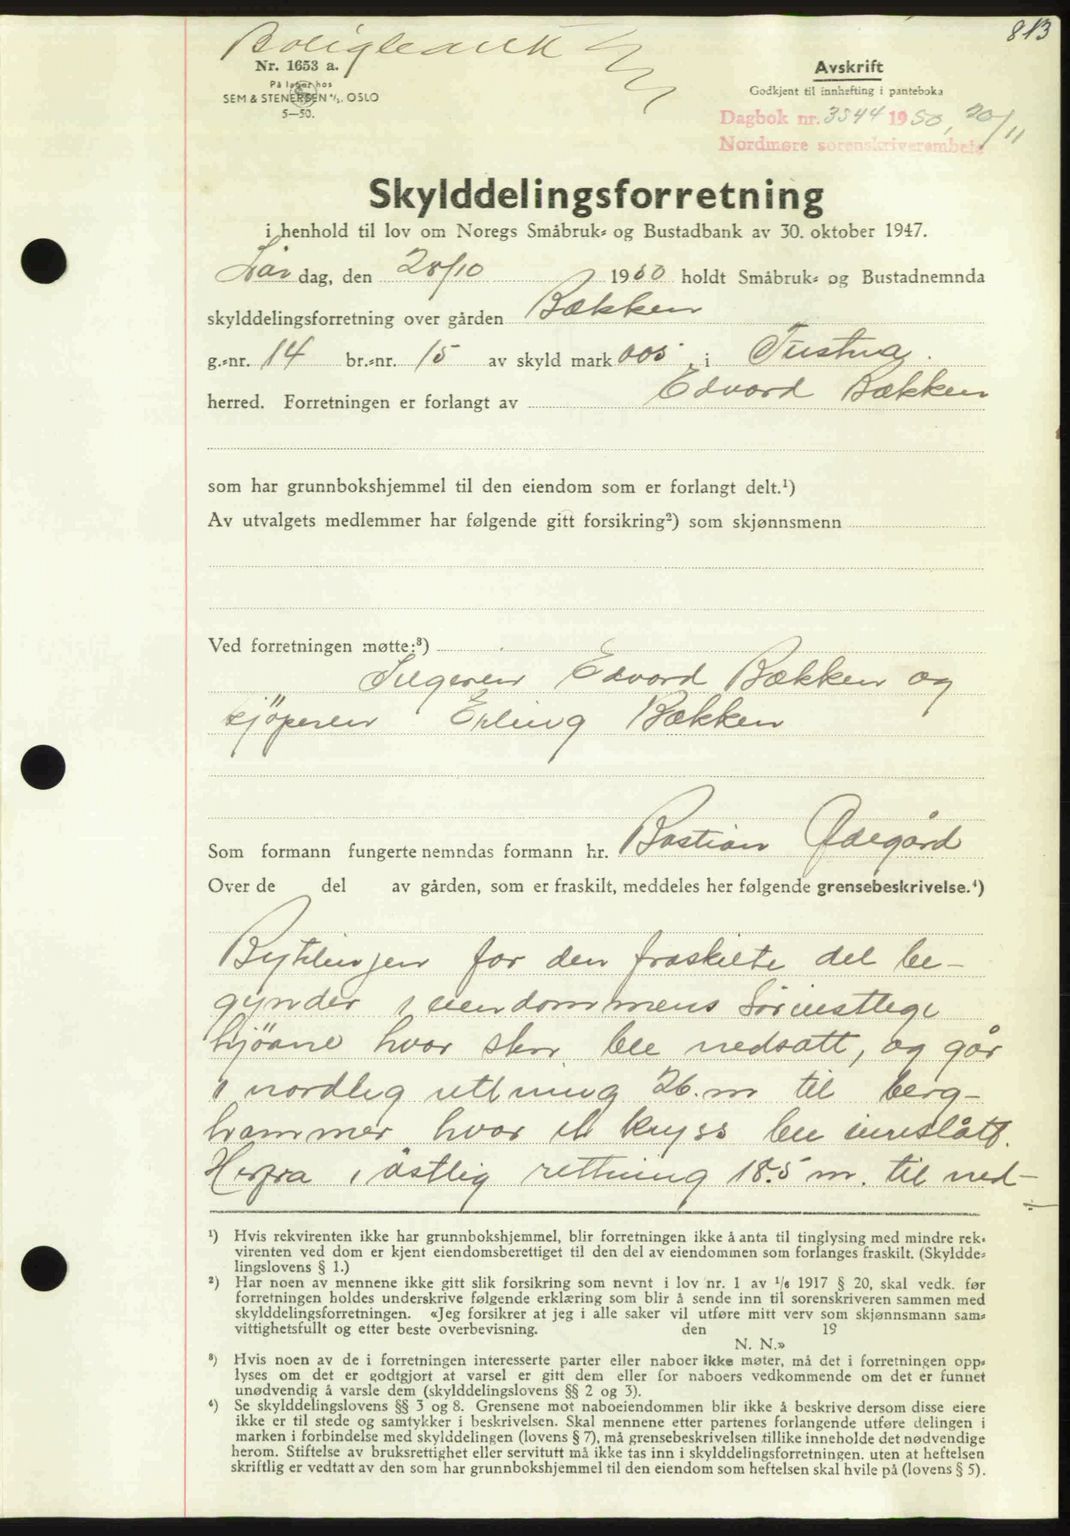 813
Boligbank
Nr. 1653 a.
På lager hos
SEM & STENERSEN A/S. OSLO
5—50.
Avskrift
Godkjent til innhefting i panteboka
Dagbok nr. 3544 1950, 20/11
Nordmøre sorenskriverembete
Skylddelingsforretning
i henhold til lov om Noregs Småbruk- og Bustadbank av 30. oktober 1947.
Lør dag, den 28/10 1950 holdt Småbruk- og Bustadnemnda
skylddelingsforretning over gården Bækken
g.-nr. 14 br.-nr. 15 av skyld mark 005 i Tustna.
herred. Forretningen er forlangt av Edvard Bækken
som har grunnbokshjemmel til den eiendom som er forlangt delt.¹)
Av utvalgets medlemmer har følgende gitt forsikring²) som skjønnsmenn
Ved forretningen møtte:³)
Selgeren Edvard Bækken og
kjöperen Erling Bækken
Som formann fungerte nemndas formann hr. Bastian Ødegård
Over de del av gården, som er fraskilt, meddeles her følgende grensebeskrivelse.⁴)
Bytelinjen for den fraskilte del be-
gynder i eiendommens Sörvestlege
hjörne hvor sten ble nedsatt, og går
i nordlig rettning 26.m til berg-
hammer hvor et kryss ble innslått.
Herfra i östlig rettning 18.5 m. til ned-
¹) Hvis rekvirenten ikke har grunnbokshjemmel, blir forretningen ikke å anta til tinglysing med mindre rek-
virenten ved dom er kjent eiendomsberettiget til den del av eiendommen som forlanges fraskilt. (Skyldde-
lingslovens § 1.)
²) Har noen av mennene ikke gitt slik forsikring som nevnt i lov nr. 1 av 1/6 1917 § 20, skal vedk. før
forretningen holdes underskrive følgende erklæring som blir å sende inn til sorenskriveren sammen med
skylddelingsforretningen. «Jeg forsikrer at jeg i alle saker vil utføre mitt verv som skjønnsmann sam-
vittighetsfullt og etter beste overbevisning. den 19
N. N.»
³) Hvis noen av de i forretningen interesserte parter eller naboer ikke møter, må det i forretningen opp-
lyses om det er godtgjort at varsel er gitt dem eller for naboers vedkommende om det er funnet
unødvendig å varsle dem (skylddelingslovens §§ 2 og 3).
⁴) Se skylddelingslovens §§ 3 og 8. Grensene mot naboeiendommen blir ikke å beskrive dersom disse eiere
ikke er til stede og samtykker i beskrivelsen. Skal mennene etter partenes forlangende utføre delingen i
marken i forbindelse med skylddelingen (lovens § 7), må grensebeskrivelsen tillike inneholde det nødvendige
herom. Stiftelse av bruksrettighet eller servitutt må ikke tas inn i skylddelingsforretningen. uten at heftelsen
skriftlig er vedtatt av den som har grunnbokshjemmel til den eiendom som heftelsen skal hvile på (lovens § 5).